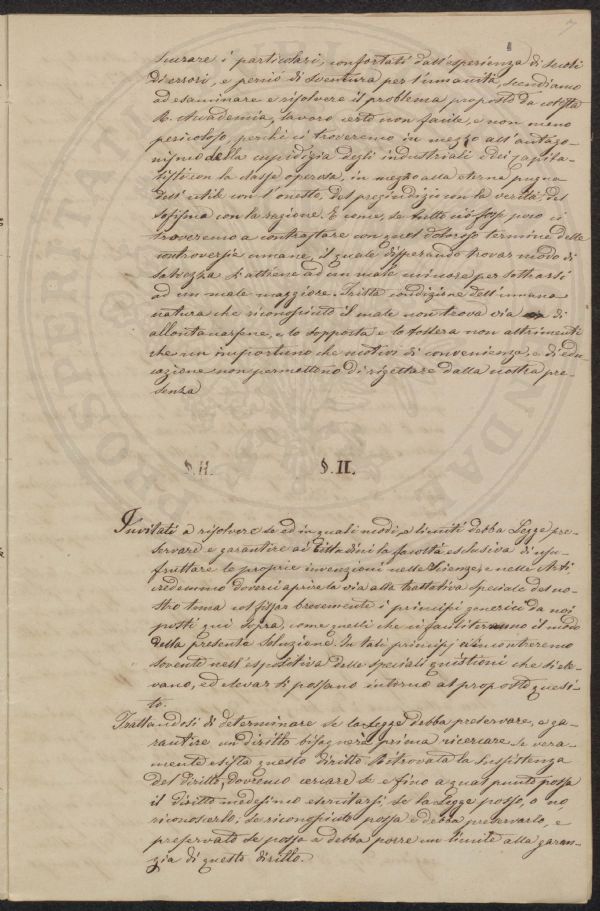 scurare i particolari, confortati dall'esperienza di secoli
di errori, e perciò di sventura per l'umanità, scendiamo
ad esaminare e risolvere il problema proposto da cotesta
R. Accademia, lavoro certo non facile, e non meno
pericoloso perchè ci troveremo in mezzo all'antago-
nismo della cupidigia degli industriali e dei capita-
listi con la classe operosa, in mezzo alla eterna pugna
dell'utile con l'onesto, del pregiudizio con la verità, del
sofisma con la ragione. E come, se tutto ciò fosse poco ci
troveremo a contrastare con quel doloroso termine delle
controversie umane, il quale disperando trovar modo di
salvezza si attiene ad un male minore per sottrarsi
ad un male maggiore. Trista condizione dell'umana
natura che riconosciuto il male non trova via di
allontanarsene, e lo sopporta e lo tollera non altrimenti
che un importuno che motivi di convenienza, e di edu-
cazione non permettono di rigettare dalla nostra pre-
senza
§. II. §. II.
Invitati a risolvere se ed in quali modi, e limiti debba Legge pre-
servare e garantire ai Cittadini la facoltà esclusiva di usu-
fruttare le proprie invenzioni nelle Scienze e nelle Arti
credemmo doverci aprire la via alla trattativa speciale del no-
stro tema col fissar brevemente i principi generici da noi
posti qui sopra, come quelli che ci faciliteranno il modo
della presente soluzione. In tali principj c'incontreremo
sovente nell'espositiva delle speciali quistioni che si ele-
vano, ed elevar si possano intorno al proposto quesi-
to.
Trattandosi di determinare se la Legge debba preservare, e ga-
rantire un diritto bisognerà prima ricercare se vera-
mente esista questo diritto. Ritrovata la sussistenza
del diritto, dovremo cercare se e fino a qual punto possa
il diritto medesimo esercitarsi se la Legge possa, o no
riconoscerlo, se riconosciuto possa e debba preservarlo, e
preservato se possa e debba porre un limite alla garan-
zia di questo diritto.